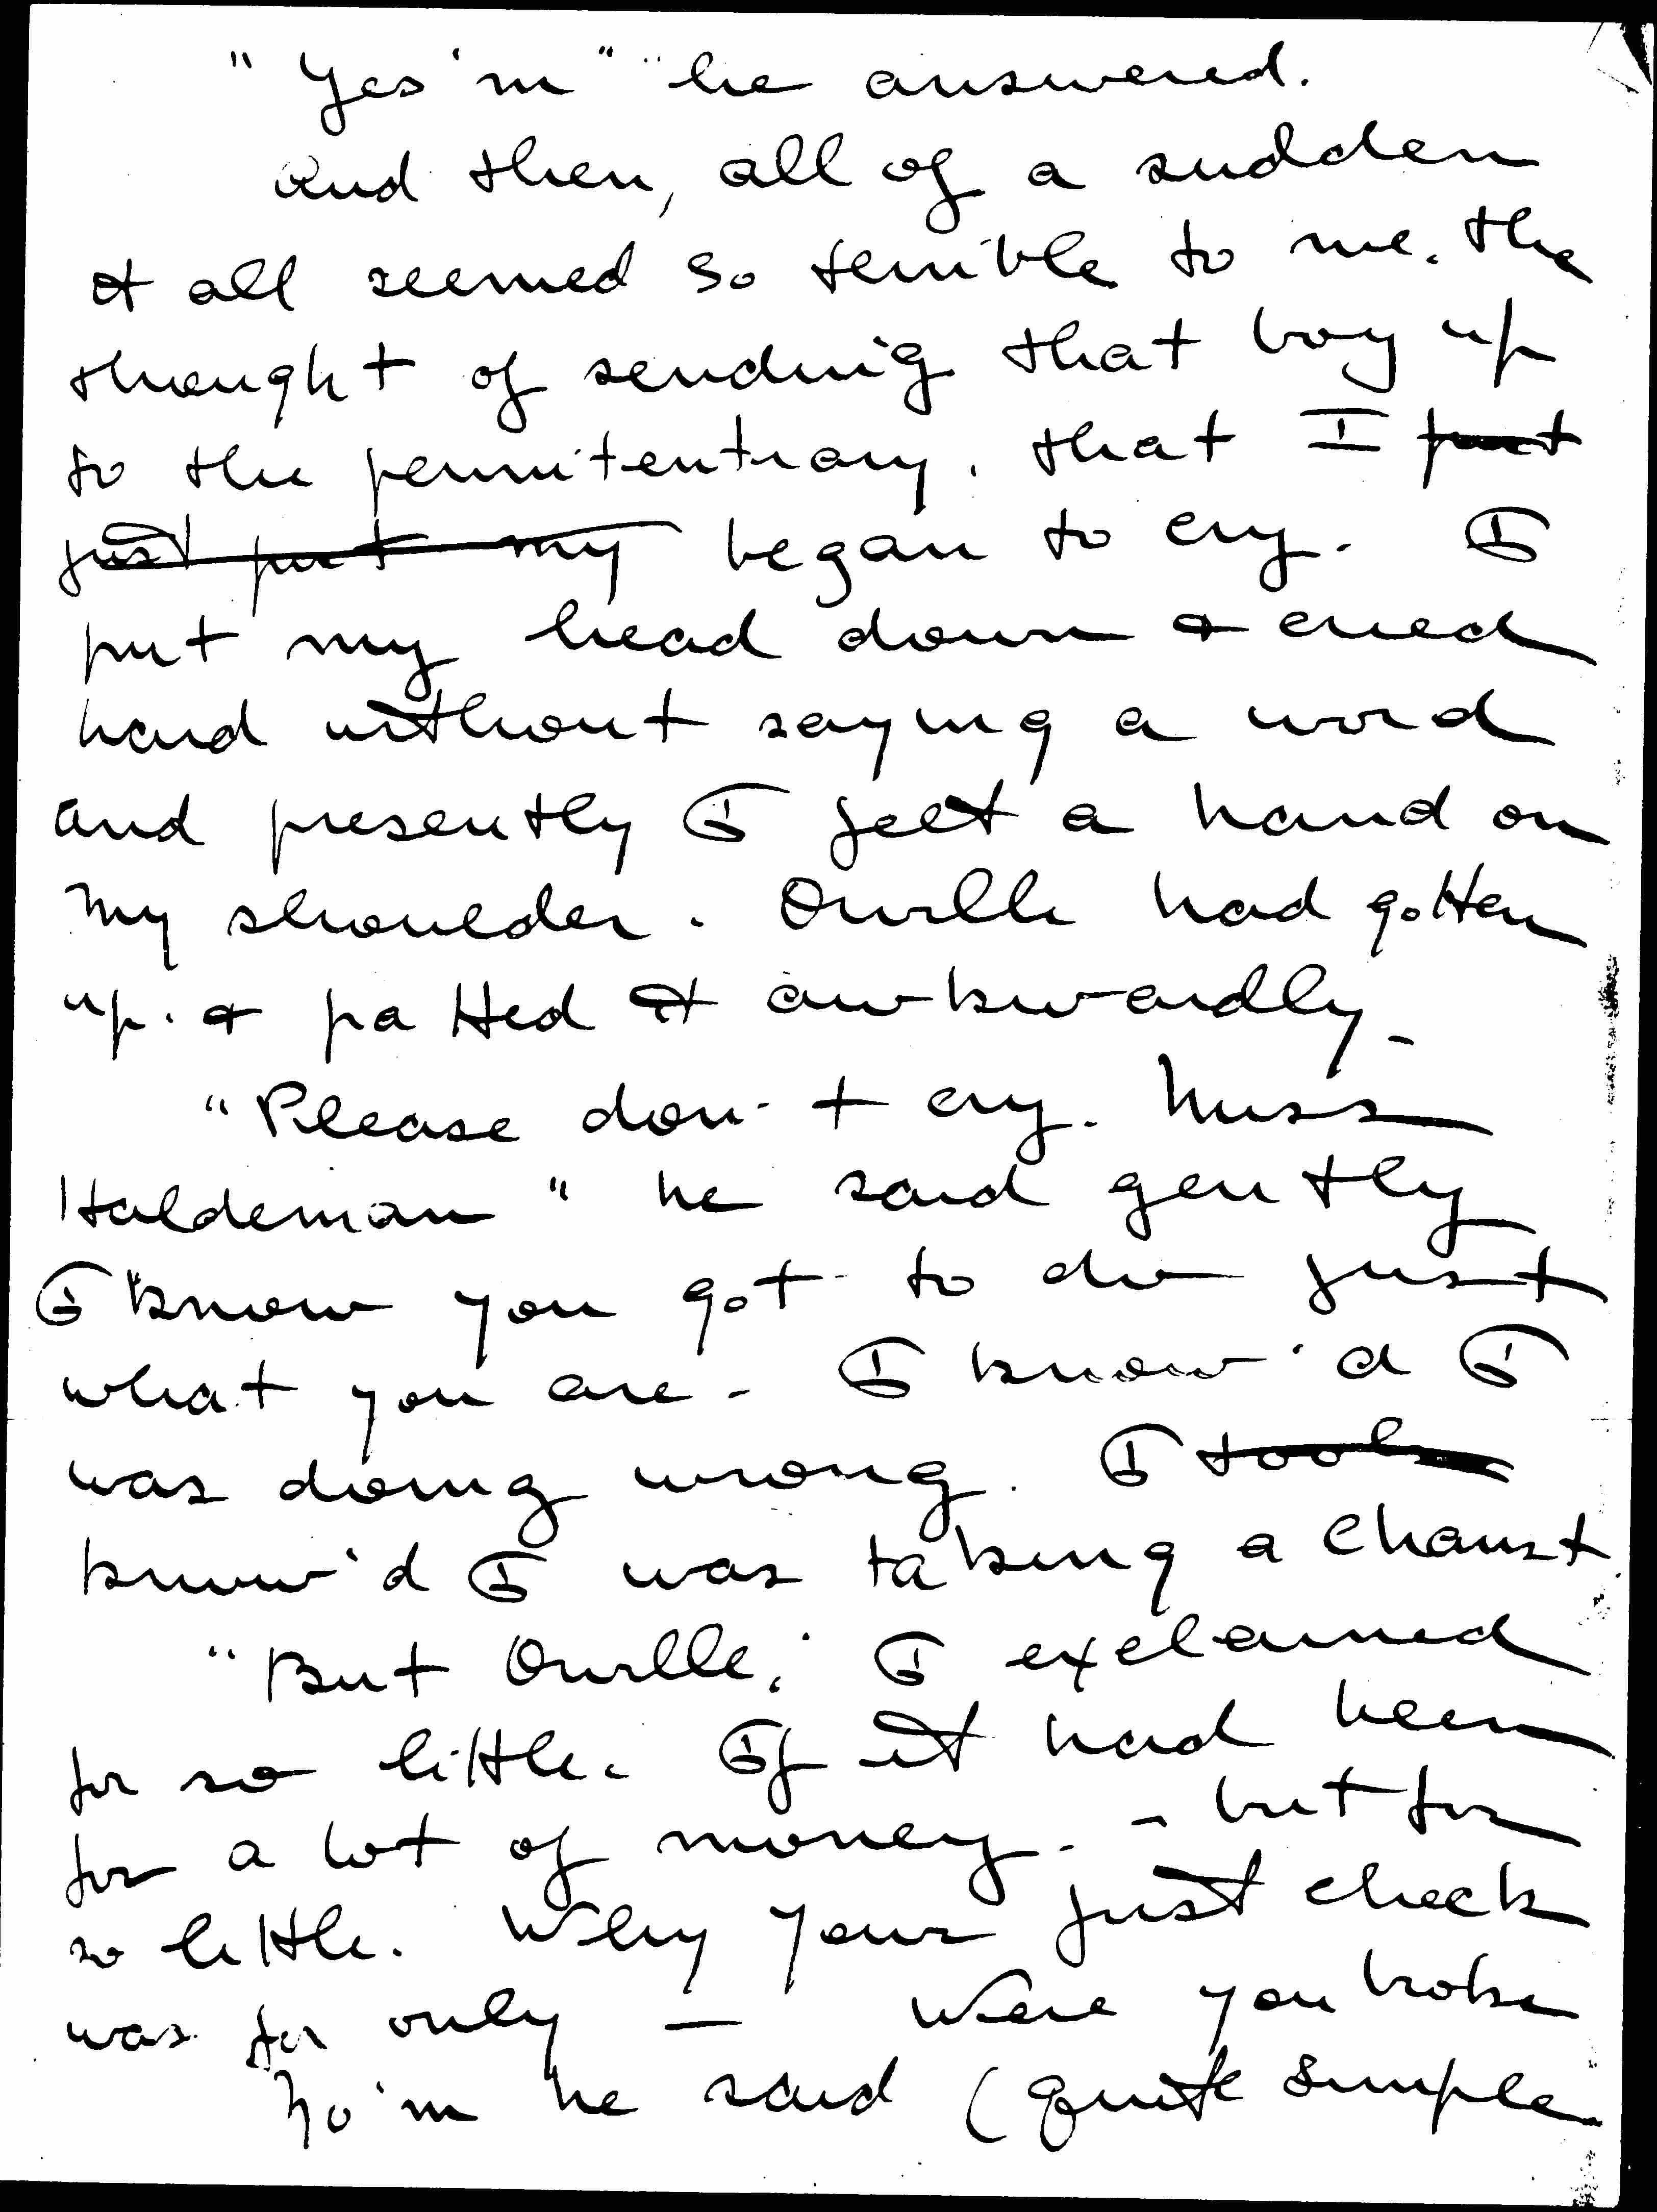 "Yes'm" he answered.
And then, all of a sudden
it all seemed so terrible to me. the
thought of sending that boy up
to the pennitentiary, that I put
just put my began to cry. I
put my head down & cried
hard without saying a word
and presently I felt a hand on
my shoulder. Orville had gotten
up. & patted it awkwardly.
"Please don't cry. Miss
Haldeman" he said gently
I "know you got to do just
what you are - I know'd I
was doing wrong. I took
know'd I was taking a chanst.
"But Orville," I exclaimed
for so little. If it had been
for a lot of money. - but for
so little. Why your just check
was for only — Were you broke
No'm he said (quite simple